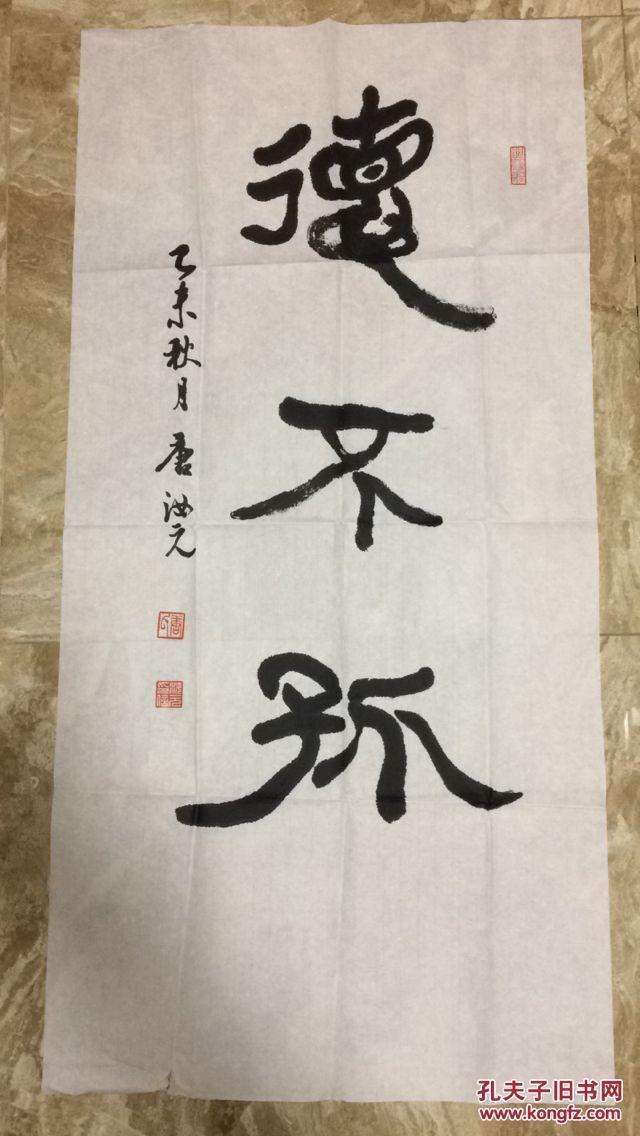 德不孤
乙未秋月 唐汝元
孔夫子旧书网
www.kongfz.com